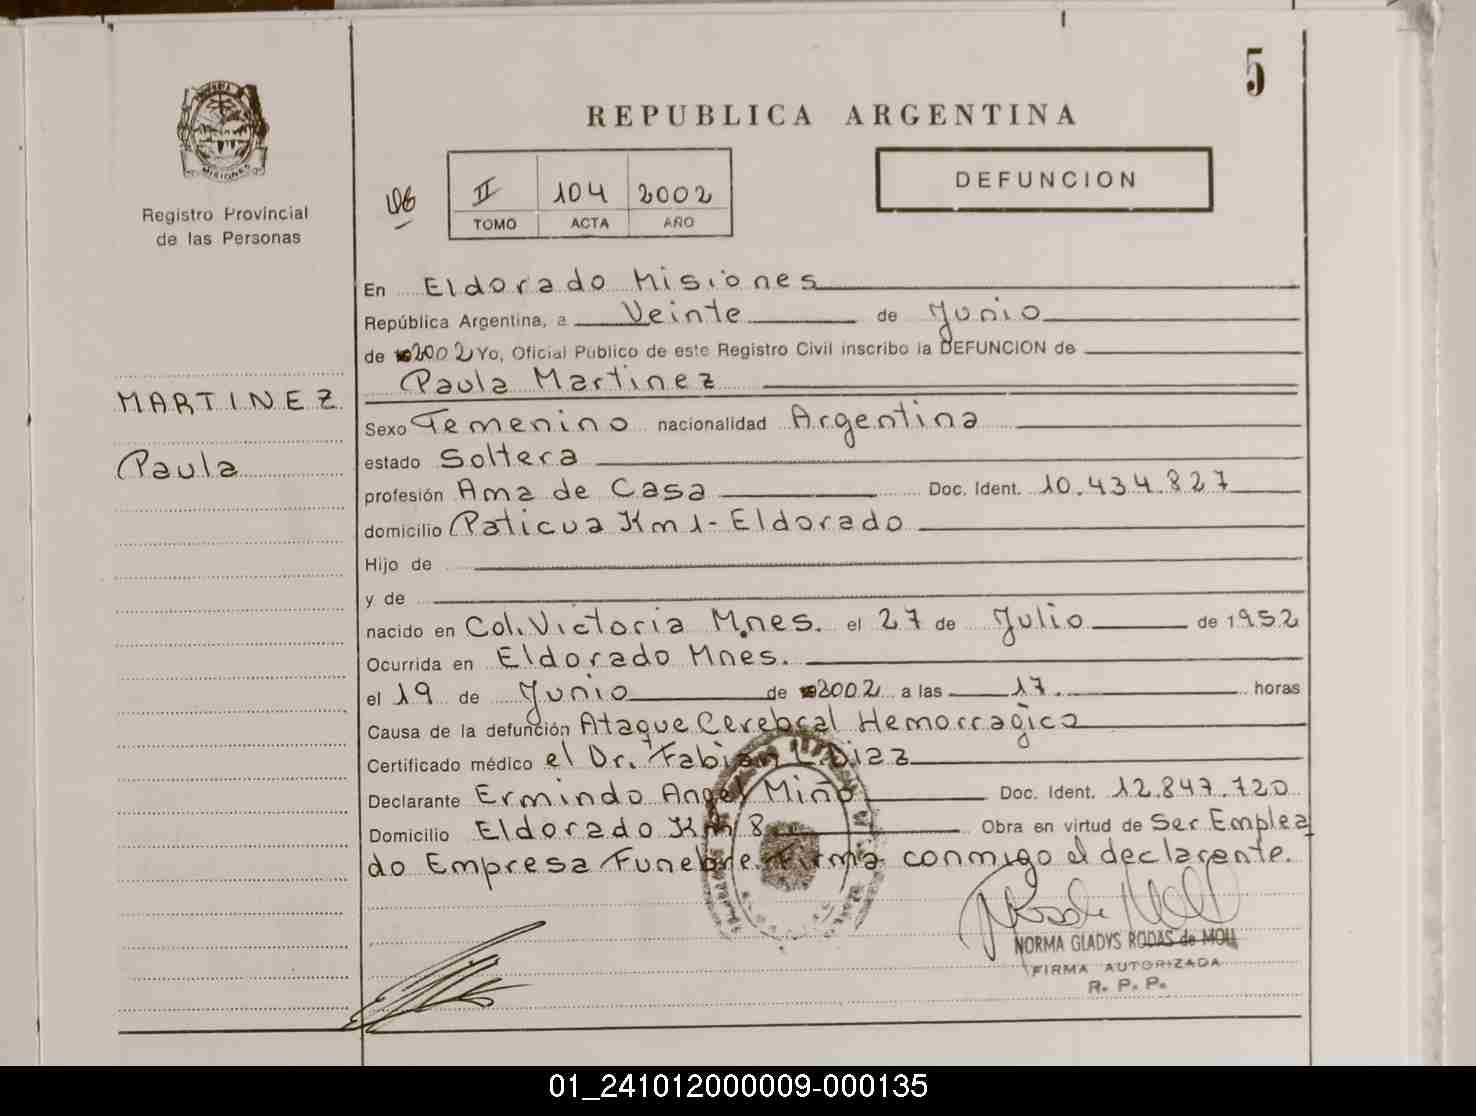 5
REPUBLICA ARGENTINA
MISIONES
Registro Provincial
de las Personas
II 104 2002
TOMO ACTA AÑO
DEFUNCION
En Eldorado Misiones
República Argentina, a Veinte de Junio
de 2002 Yo, Oficial Público de este Registro Civil inscribo la DEFUNCION de
MARTINEZ
Paula
Paula Martinez
Sexo Femenino nacionalidad Argentina
estado Soltera
profesión Ama de Casa Doc. Ident. 10.434.827
domicilio Paticua Km 1- Eldorado
Hijo de
y de
nacido en Col. Victoria Mnes. el 27 de Julio de 1952
Ocurrida en Eldorado Mnes.
el 19 de Junio de 2002 a las 17 horas
Causa de la defunción Ataque Cerebral Hemorragico
Certificado médico el Dr. Fabian Diaz
Declarante Ermindo Angel Miño Doc. Ident. 12.847.720
Domicilio Eldorado Km 8 Obra en virtud de Ser Emplea
do Empresa Funebre. Firma conmigo el declarante.
NORMA GLADYS RODAS de MOLL
FIRMA AUTORIZADA
R. P. P.
01_241012000009-000135